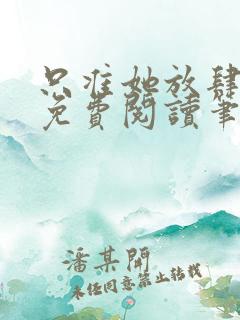 只准她放肆
免費閱讀筆
潘某開
未經同意禁止轉載